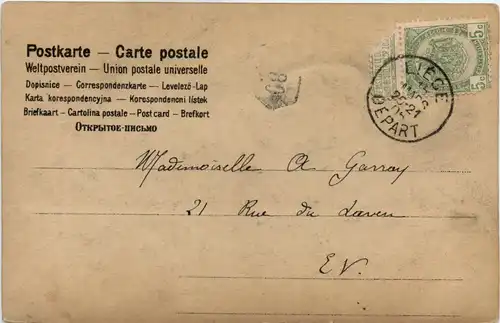 Postkarte — Carte postale
Weltpostverein — Union postale universelle
Dopisnice — Correspondenzkarte — Levelező-Lap
Karta korespondencyjna — Korespondenoni listek
Briefkaart — Cartolina postale — Post card — Brefkort
Открытое-письмо
5C 5C
80
LIÉGE
DEPART
Mademoiselle A Garray
21 Rue du Laveu
E.V.